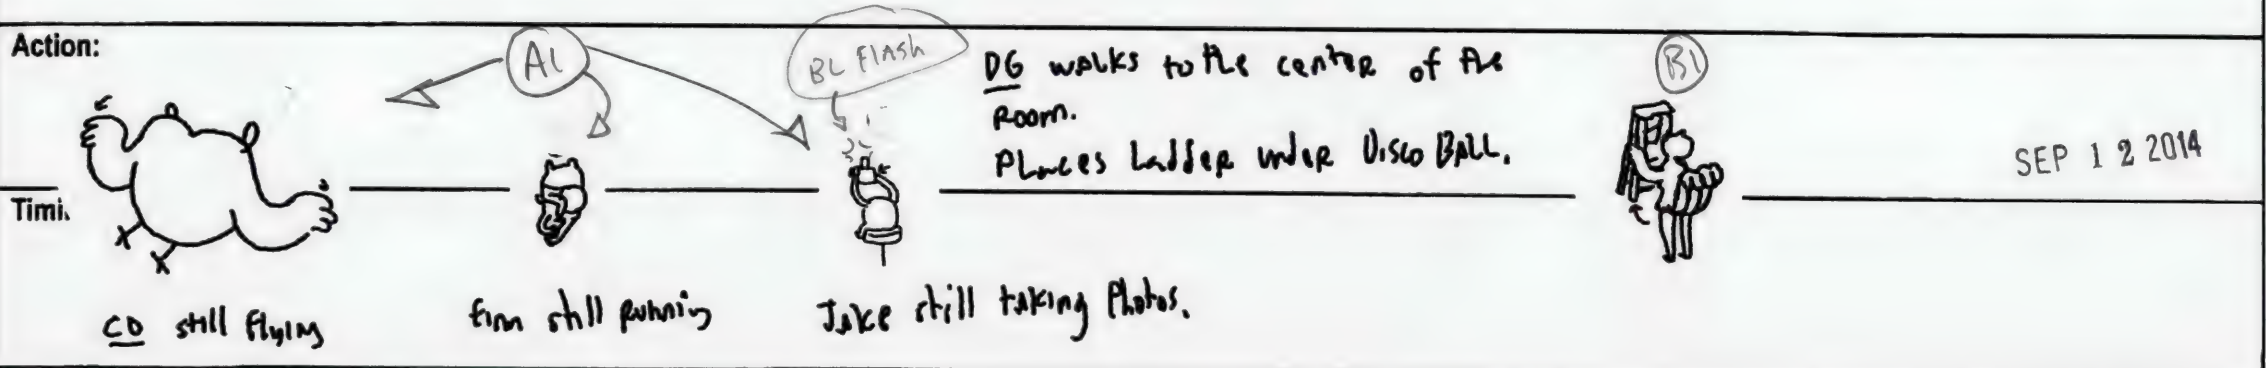 Action:
A1
BL FLASH
DG walks to the center of the
Room.
Places Ladder under Disco Ball.
B1
SEP 12 2014
Timi
CD still flying
finn still running
Jake still taking Photos.